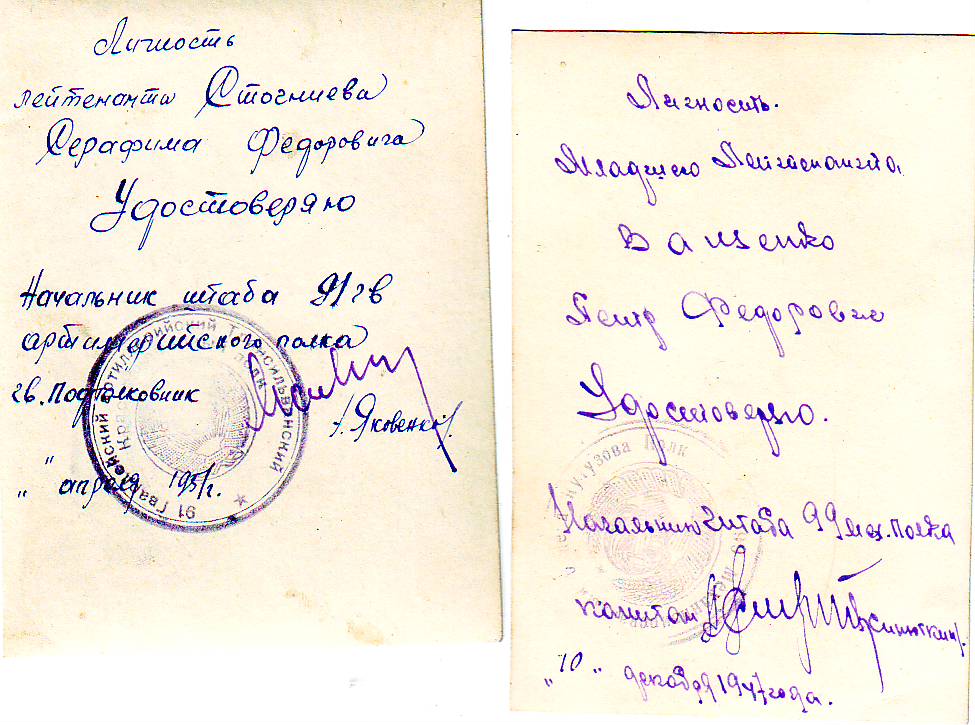 Личность
лейтенанта Стогниева
Серафима Федоровича
Удостоверяю
Начальник штаба 91 гв
артиллерийского полка
гв. Подполковник
/. Яковенко/.
„ "
апреля 1951г.
91 Гвардейский Артиллерийский Трансильванский
Личность.
Младшего Лейтенанта
Ващенко
Петр Федорович
Удостоверяю.
Кутузова Полк
Начальник Штаба 99 мех. полка
капитан /Синюткин/.
„10„ декабря 1947 года.